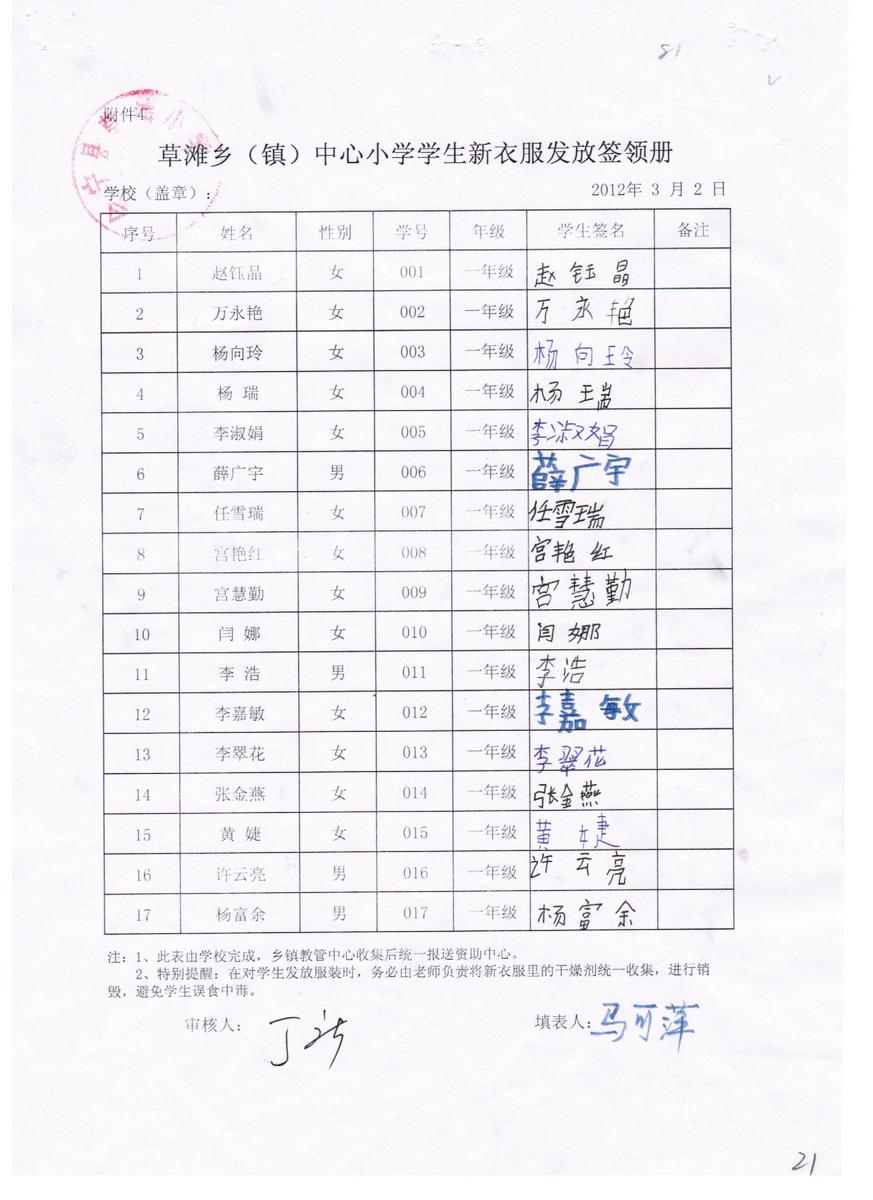 81
附件4
草滩乡（镇）中心小学学生新衣服发放签领册
学校（盖章）： 2012年 3 月 2 日
序号 姓名 性别 学号 年级 学生签名 备注
1 赵钰晶 女 001 一年级 赵钰晶
2 万永艳 女 002 一年级 万永艳
3 杨向玲 女 003 一年级 杨向玲
4 杨 瑞 女 004 一年级 杨瑞
5 李淑娟 女 005 一年级 李淑娟
6 薛广宇 男 006 一年级 薛广宇
7 任雪瑞 女 007 一年级 任雪瑞
8 宫艳红 女 008 一年级 宫艳红
9 宫慧勤 女 009 一年级 宫慧勤
10 闫 娜 女 010 一年级 闫娜
11 李 浩 男 011 一年级 李浩
12 李嘉敏 女 012 一年级 李嘉敏
13 李翠花 女 013 一年级 李翠花
14 张金燕 女 014 一年级 张金燕
15 黄 婕 女 015 一年级 黄婕
16 许云亮 男 016 一年级 许云亮
17 杨富余 男 017 一年级 杨富余
注：1、此表由学校完成，乡镇教管中心收集后统一报送资助中心。
2、特别提醒：在对学生发放服装时，务必由老师负责将新衣服里的干燥剂统一收集，进行销
毁，避免学生误食中毒。
审核人： 丁 填表人：马可萍
21